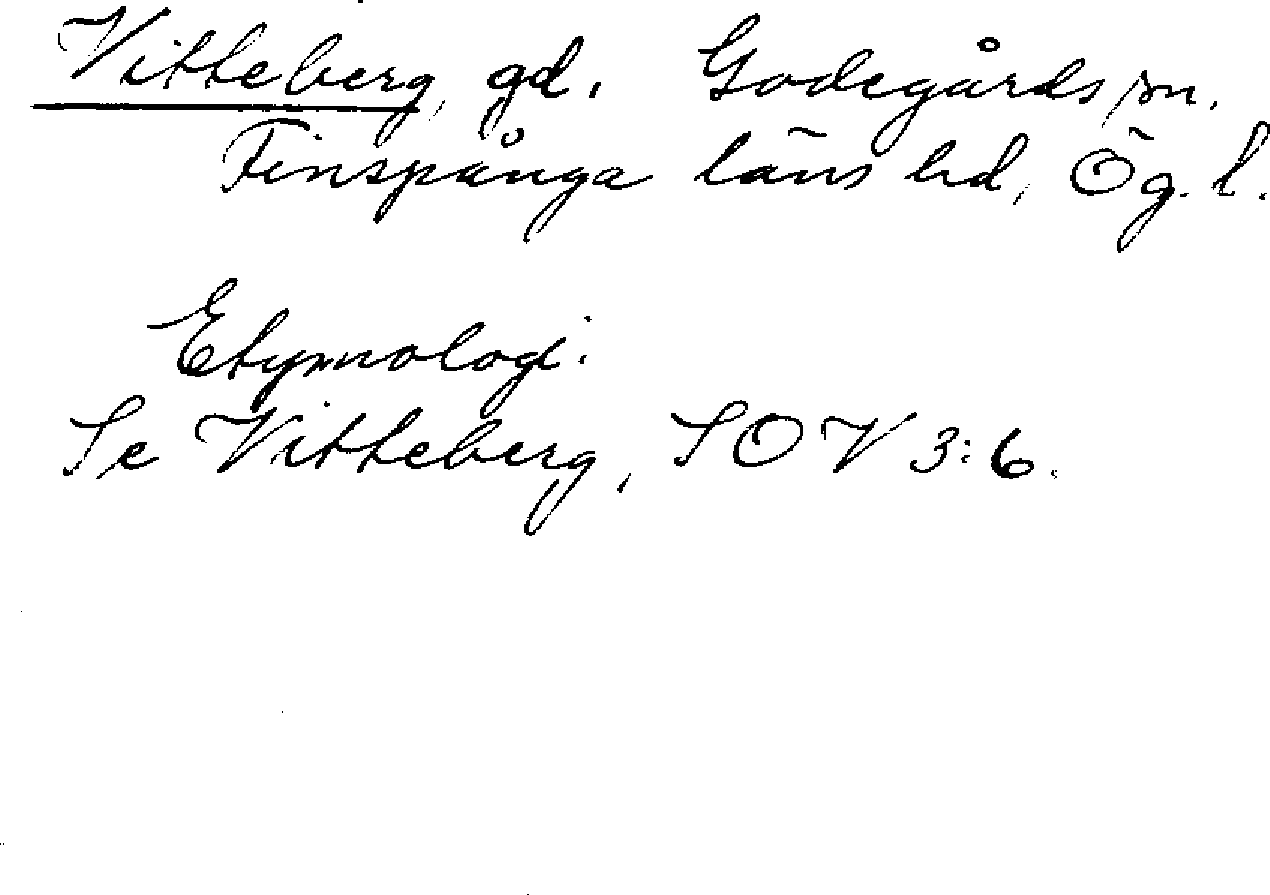 Vitteberg, gd. Godegårds sn.
Finspånga läns hd, Ög. l.
Etymologi.
Se Vitteberg, SOV 3:6.